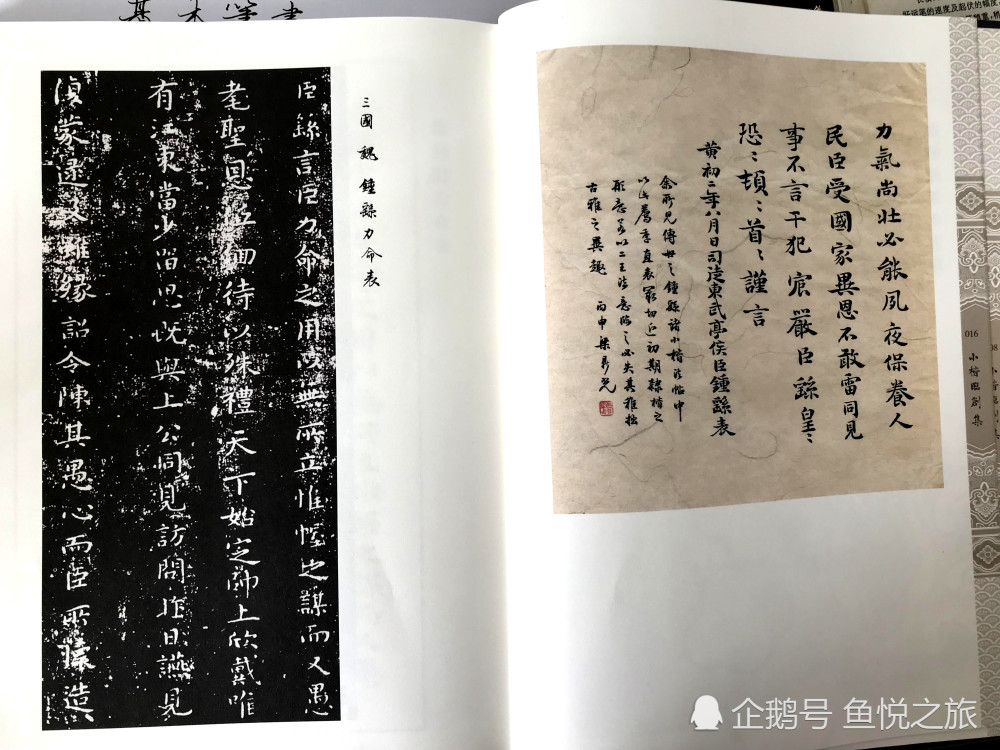 力氣尚壯必能夙夜保養人
民臣受國家異恩不敢雷同見
事不言干犯宸嚴臣繇皇〻
恐〻頓〻首〻謹言
黃初二年八月日司徒東武亭侯臣鍾繇表
余所見傳世之鍾繇諸小楷法帖中
以此薦季直表最切近初期隸楷之
形意若以二王法意臨之必失真雅拙
古雅之異趣 丙申
016
小楷臨創集
三國 魏 鍾繇力命表
臣繇言臣力命之用以無所立惟幄之謀而又愚
耄聖恩低佪待以殊禮天下始定帥土欣戴唯
有江東當少留思既與上公同見訪問昨日燕見
蒙逮及雖緣詔令陳其愚心而臣所懷造
企鹅号 鱼悦之旅